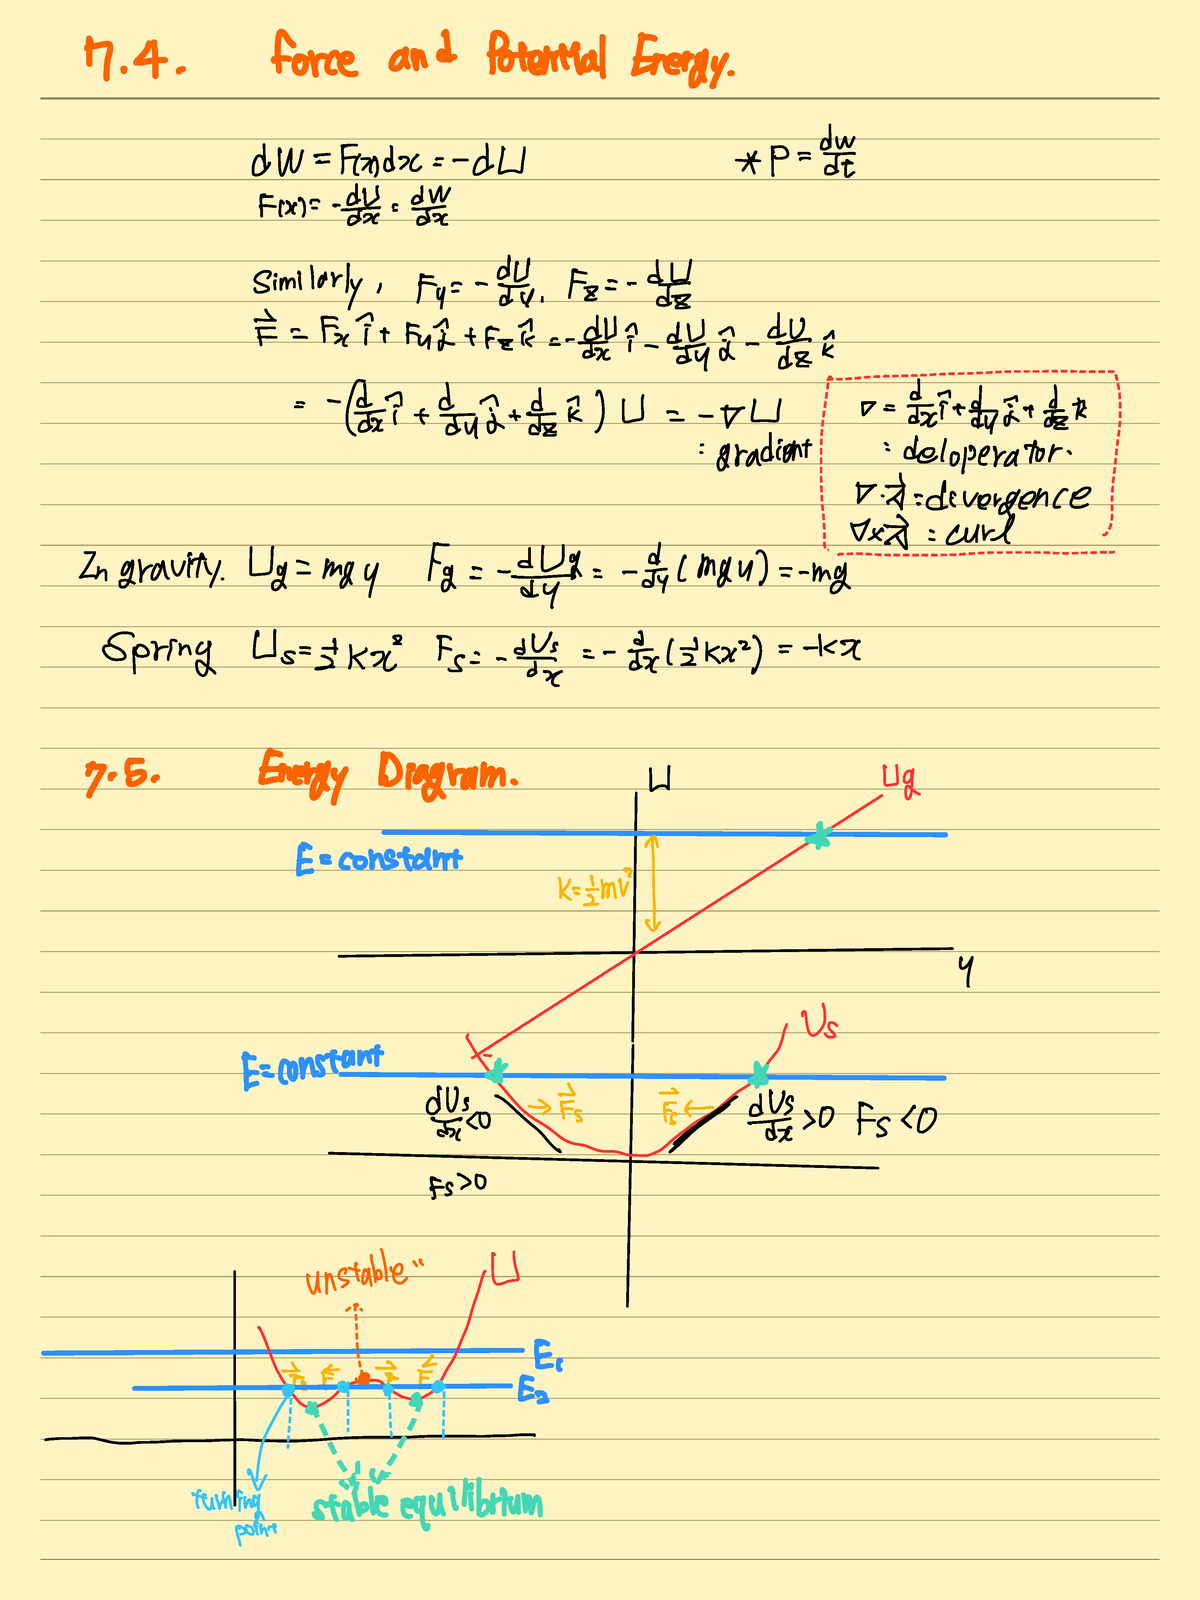 7.4. Force and Potential Energy.
dW = F(x)dx = -dU
* P = dw/dt
F(x) = -dU/dx = dW/dx
Similarly, Fy = -dU/dy, Fz = -dU/dz
F⃗ = Fx î + Fy ĵ + Fz k̂ = -dU/dx î - dU/dy ĵ - dU/dz k̂
= -(d/dx î + d/dy ĵ + d/dz k̂) U = -∇U
: gradient
∇ = d/dx î + d/dy ĵ + d/dz k
: deloperator.
∇·A⃗ = divergence
∇×A⃗ = curl
In gravity. Ug = mgy Fg = -dUg/dy = -d/dy (mgy) = -mg
Spring Us = 1/2 kx² Fs = -dUs/dx = -d/dx (1/2 kx²) = -kx
7.5. Energy Diagram.
U
Ug
E = constant
K = 1/2 mv²
y
Us
E = constant
dUs/dx <0
→ F⃗s
F⃗s ←
dUs/dx >0 Fs <0
Fs >0
unstable
U
E₁
F⃗ F⃗ F⃗ F⃗
E₂
turning
point
stable equilibrium